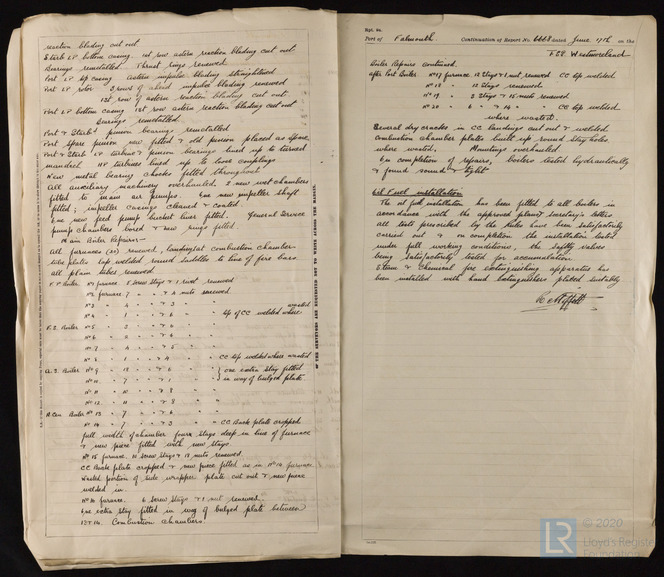 reaction blading cut out.
Starb LP bottom casing 1st row astern reaction blading cut out
Bearings remetalled Thrust rings renewed
Port LP top casing astern impulse blading straightened
Port LP rotor 3 rows of ahead impulse blading renewed
1st row of astern reaction blading cut out
Port LP bottom casing 1st row astern reaction blading cut out
Bearings remetalled
Port & Starbd pinion bearings remetalled
Port spare pinion now fitted & old pinion placed as spare
Port & Starb LP turbine & pinion bearings lined up to turned
mandrel HP turbines lined up to loose couplings
New metal bearing chocks fitted throughout
All auxiliary machinery overhauled. 2 new wet chambers
fitted to main air pumps. One new impeller shaft
fitted; impeller casings cleaned & coated.
One new feed pump bucket liner fitted. General Service
pump chambers bored & new rings fitted.
Main Boiler Repairs:-
All furnaces renewed, combustion chamber
tube plates top welded round saddles to line of fire bars
all plain tubes renewed.
F.P Boiler No 1 furnace 8 screw stays & 1 nut renewed
No 2 furnace 7 " " & 4 nuts renewed
No 3 " 4 " " 3 "
No 4 " 1 " " 6 " " top of CC welded where wasted
F.S. Boiler No 5 " 3 " " 6 "
No 6 " 6 " "
No 7 " 4 " " 5 "
No 8 " 1 " " 4 " " CC top welded where wasted
A.S. Boiler No 9 " 12 " " 6 " one extra stay fitted
No 10 " 7 " " 1 " in way of bulged plate
No 11 " 10 " " 8 "
No 12 " 11 " " 8 "
A Cen. Boiler No 13 " 7 " " 6 "
No 14 " 7 " " 3 " " CC Back plate cropped
full width of chamber four stays deep in line of furnace
& new piece fitted with new stays.
No 15 furnace 10 screw stays & 12 nuts renewed.
CC Back plate cropped & new piece fitted as in No 14 furnace
Wasted portion of side wrapper plate cut out & new piece
welded in
No 16 furnace. 6 Screw Stays & 1 nut renewed.
One extra stay fitted in way of bulged plate between
13 & 14 Combustion chambers.
Rpt. 9a.
Port of Falmouth Continuation of Report No. 6668 dated June 17th on the
TSS. Westmoreland
Boiler Repairs continued.
After Port Boiler No 17 furnace 12 stays & 1 nut renewed CC top welded
No 18 " 12 stays renewed
No 19 " 3 stays & 15 nuts renewed
No 20 " 6 " & 14 " " CC top welded
where wasted.
Several dry cracks in CC landings cut out & welded
Combustion chamber plates built up round stay holes
where wasted. Mountings overhauled.
On completion of repairs, boilers tested hydraulically
& found sound & tight
Oil Fuel installation
The oil fuel installation has been fitted to all boilers in
accordance with the approved plans & Secretary's letters
all tests prescribed by the Rules have been satisfactorily
carried out & on completion the installation tested
under full working conditions, the safety valves
being satisfactorily tested for accumulation.
Steam & Chemical fire extinguishing apparatus has
been installed with hand extinguishers placed suitably
© 2020
LR
Lloyd's Register
Foundation